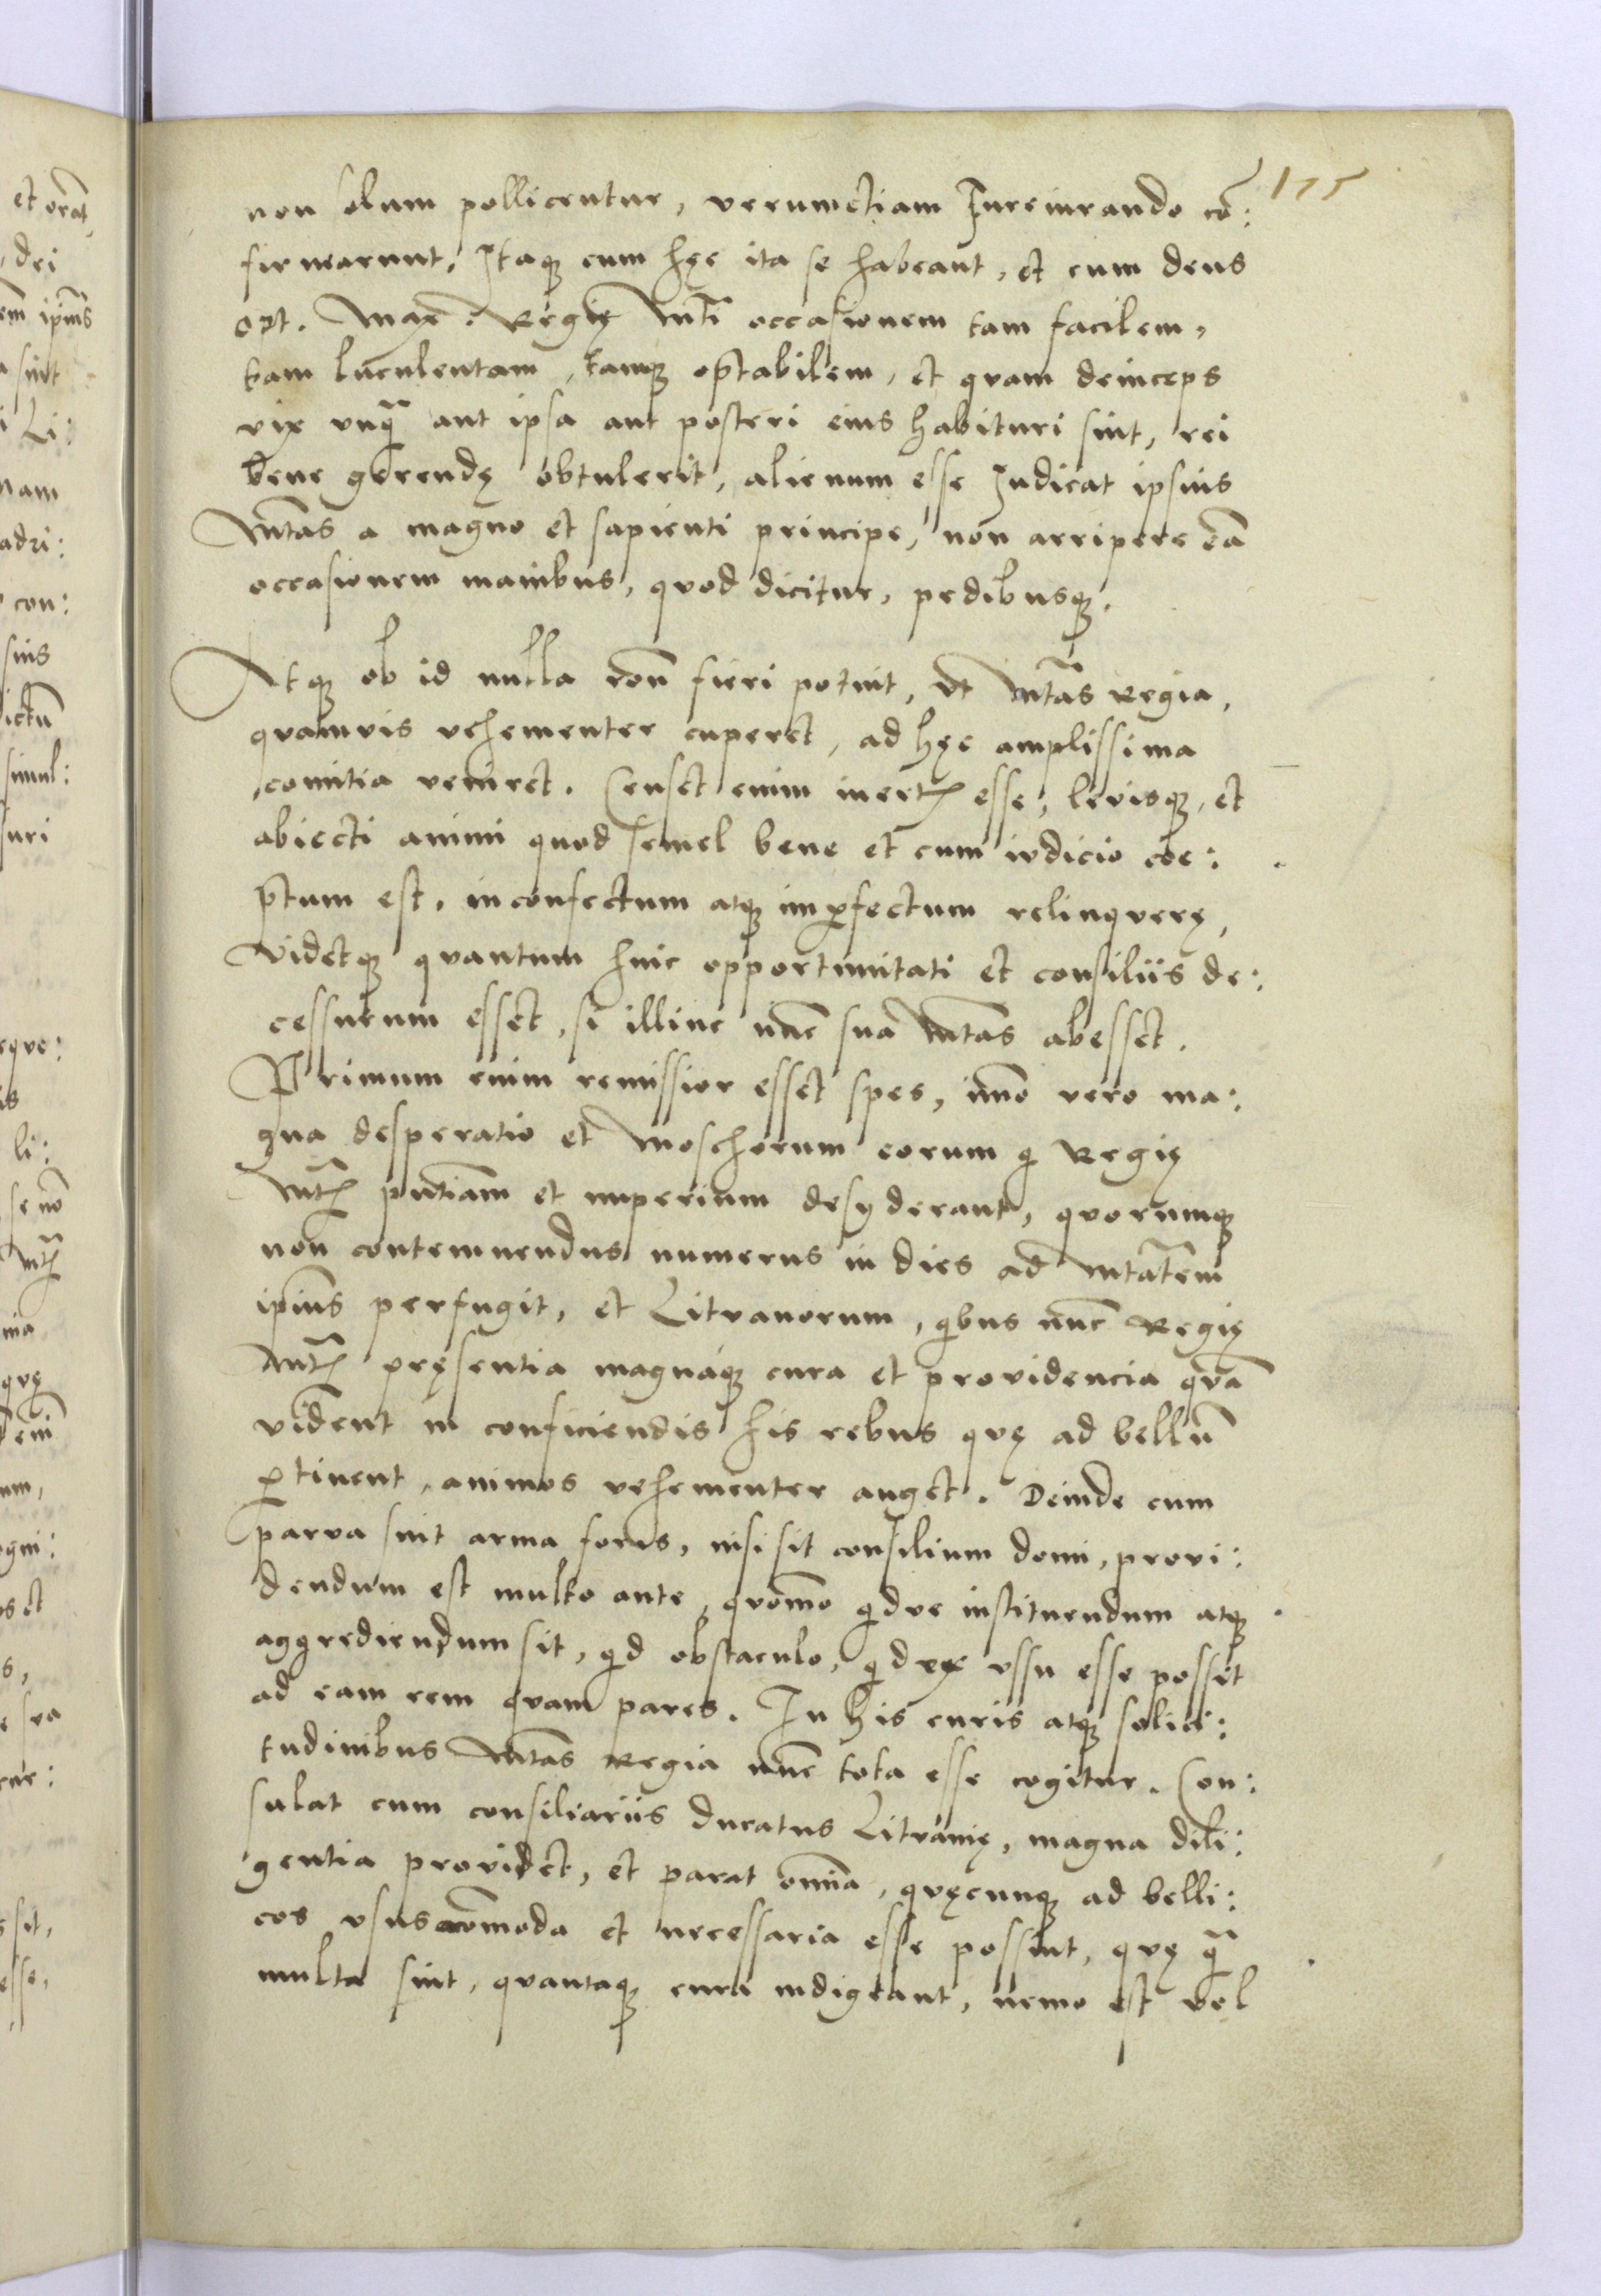 175
non solum pollicentur, verumetiam Iureiurando cō:
firmarunt. Itaq; cum hęc ita se habeant, et cum deus
opt. Max: Regię Mti occasionem tam facilem,
tam luculentam, tamq; optabilem, et quam deinceps
vix unq̄ aut ipsa aut posteri eius habituri sint, rei
bene gerendę obtulerit, alienum esse Iudicat ipsius
Mtas a magno et sapienti principe, non arripere eā
occasionem manibus, quod dicitur, pedibusq;.
Atq; ob id nulla rōn fieri potuit, ut Mtas Regia,
quamvis vehementer cuperet, ad hęc amplissima
comitia veniret. Censet enim inertis esse, levisq;, et
abiecti animi quod semel bene et cum iudicio coe:
ptum est, inconfectum atq; imperfectum relinquere,
Videtq; quantum huic opportunitati et consiliis de:
cessurum esset, si illinc nūc sua Mtas abesset.
Primum enim remissior esset spes, imō vero ma:
gna desperatio et Moschorum eorum q Regię
Mtis pn̄tiam et imperium desyderant, quorumq;
non contemnendus numerus in dies ad Mtatem
ip̄ius perfugit, et Litvanorum, qbus nūc Regię
Mtis pręsentia magnaq; cura et providencia quā
vident in conficiendis his rebus quę ad bellū
ptinent, animos vehementer auget. Deinde cum
parva sint arma foris, nisi sit consilium domi, provi:
dendum est multo ante, quomō qdve instituendum atq;
aggrediendum sit, qd obstaculo, qd vssu esse possit
ad eam rem quam pares. In his curis atq; solici:
tudinibus Mtas Regia nūc tota esse cogitur. Con:
sulat cum consiliariis ducatus Litvanię, magna dili:
gentia providet, et parat omīa, quęcunq; ad belli:
cos usus cōmoda et necessaria esse possint, quę q̄
multa sint, quantaq; cura indigeant, nemo est vel